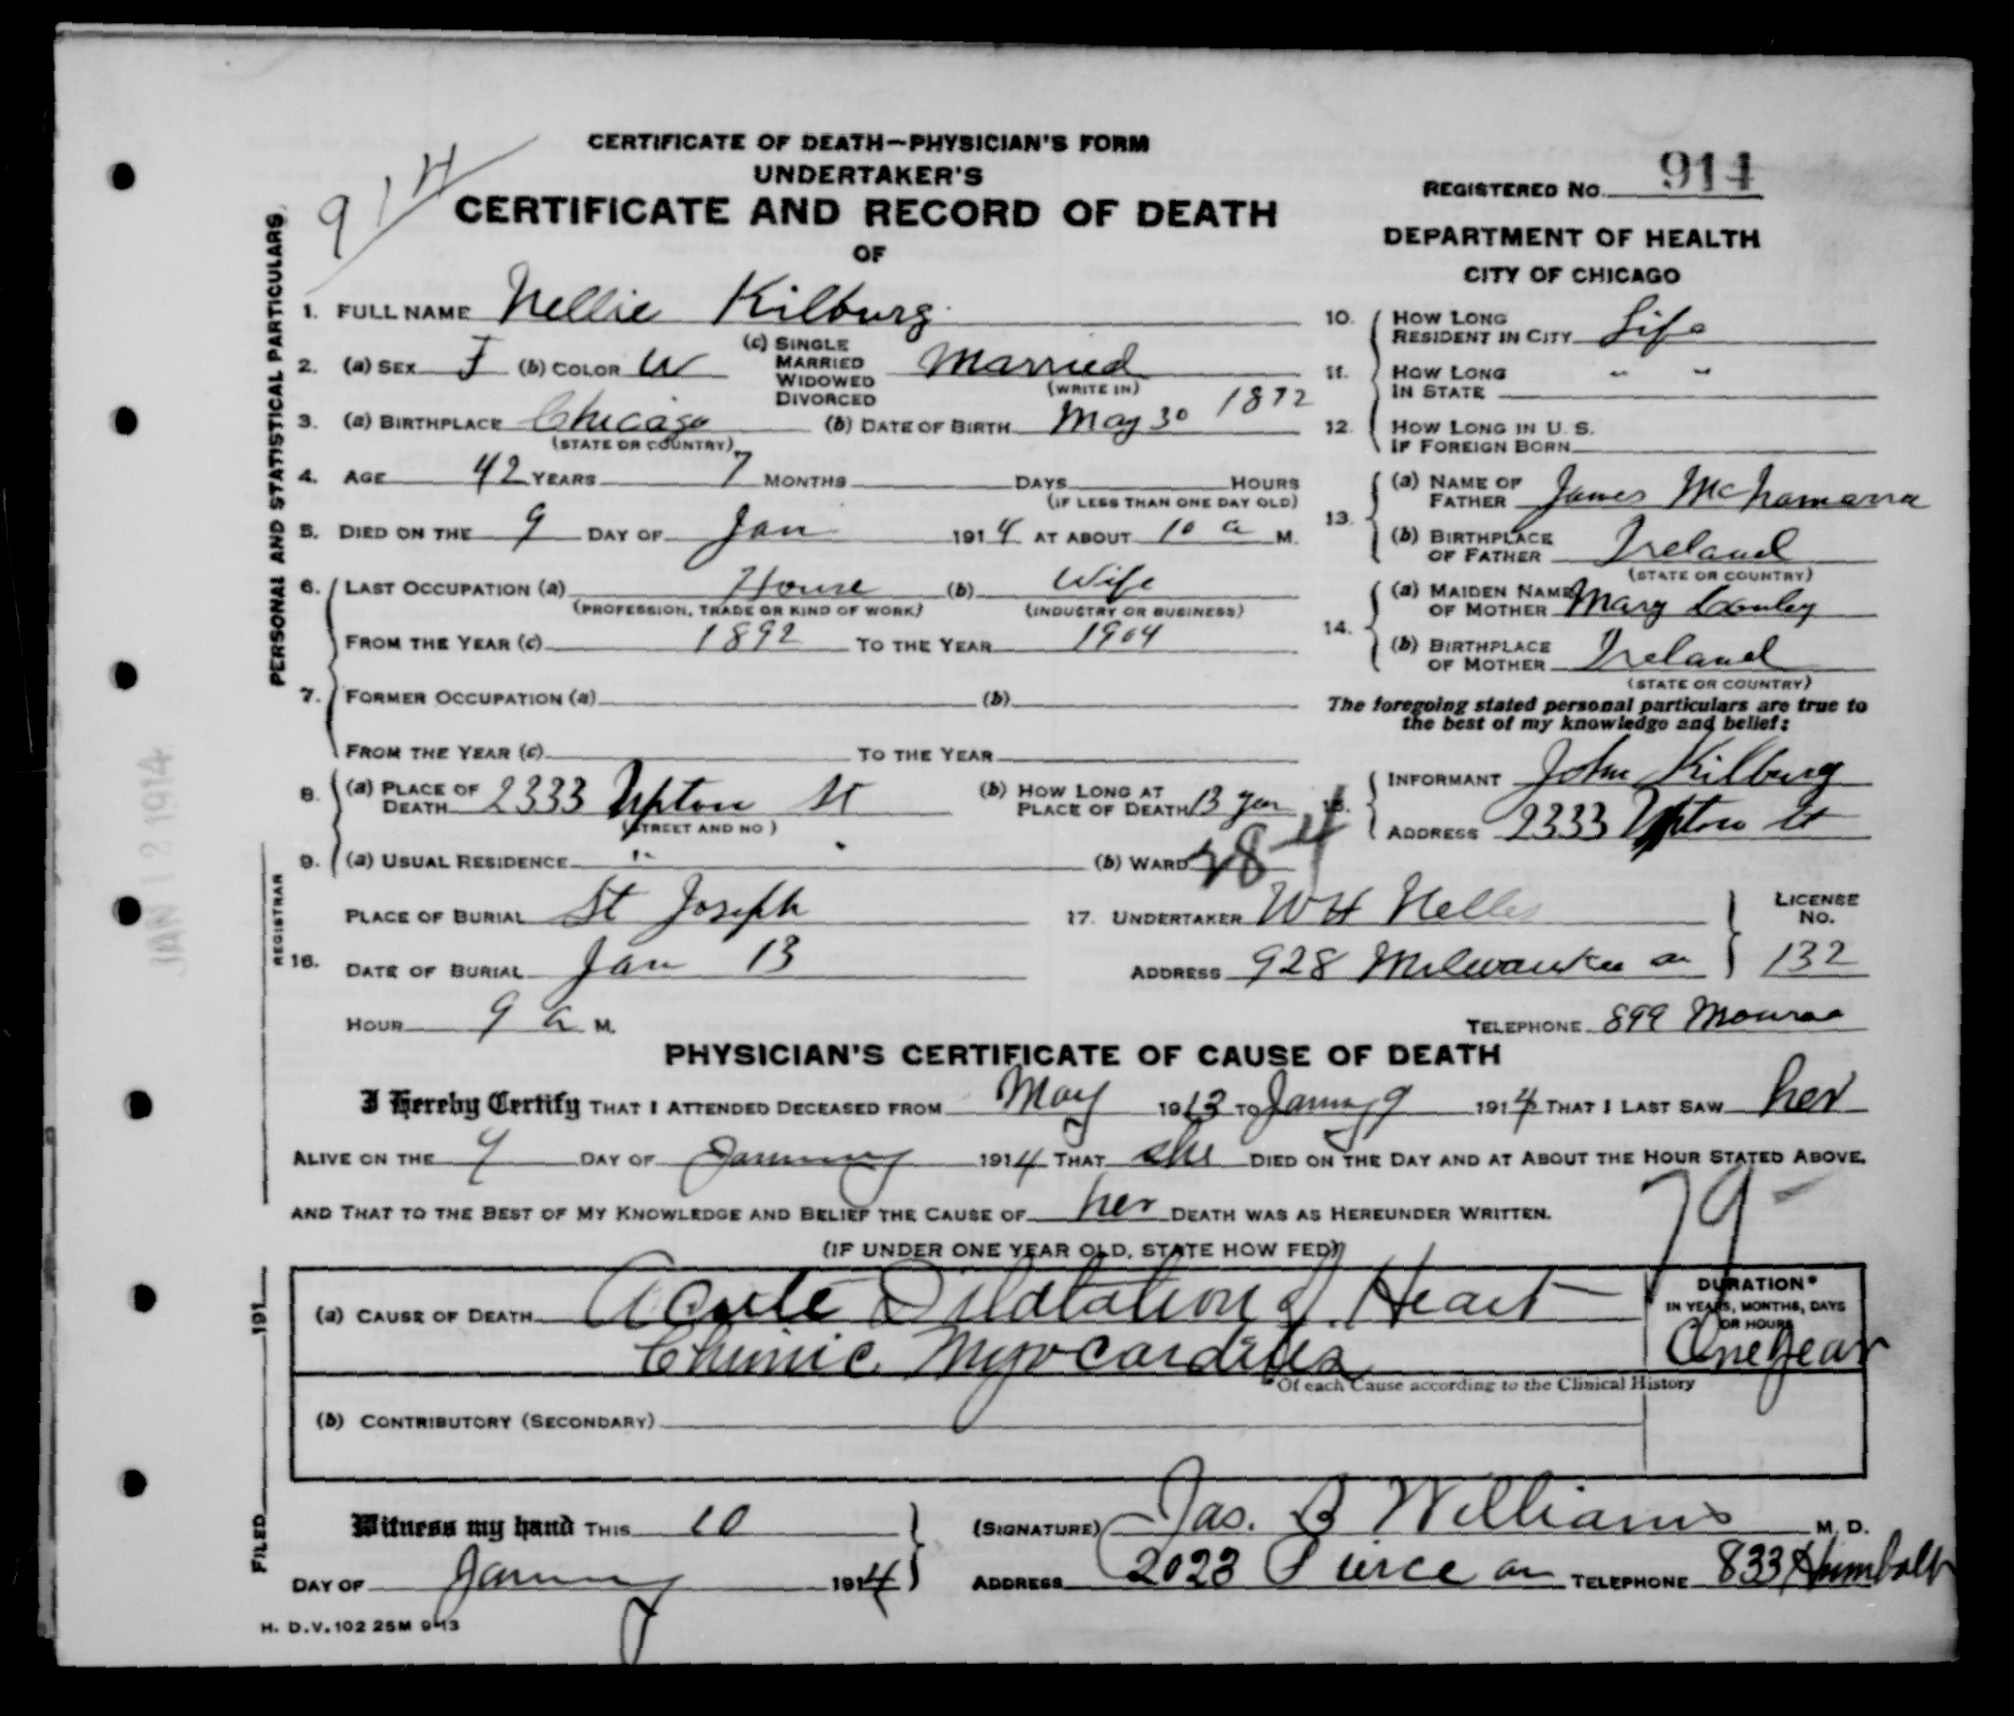 CERTIFICATE OF DEATH—PHYSICIAN'S FORM
UNDERTAKER'S
CERTIFICATE AND RECORD OF DEATH
OF
914
REGISTERED NO. 914
DEPARTMENT OF HEALTH
CITY OF CHICAGO
PERSONAL AND STATISTICAL PARTICULARS
1. FULL NAME Nellie Kilburg
2. (a) SEX F (b) COLOR W (c) SINGLE MARRIED WIDOWED DIVORCED Married
(WRITE IN)
3. (a) BIRTHPLACE Chicago (b) DATE OF BIRTH May 30 1872
(STATE OR COUNTRY)
4. AGE 42 YEARS 7 MONTHS DAYS HOURS
(IF LESS THAN ONE DAY OLD)
5. DIED ON THE 9 DAY OF Jan 1914 AT ABOUT 10 a M.
6. LAST OCCUPATION (a) House (b) Wife
(PROFESSION, TRADE OR KIND OF WORK) (INDUSTRY OR BUSINESS)
FROM THE YEAR (c) 1892 TO THE YEAR 1904
7. FORMER OCCUPATION (a) (b)
FROM THE YEAR (c) TO THE YEAR
8. (a) PLACE OF DEATH 2333 Upton St (b) HOW LONG AT PLACE OF DEATH 13 year
(STREET AND NO)
9. (a) USUAL RESIDENCE " " (b) WARD 28
10. HOW LONG RESIDENT IN CITY Life
11. HOW LONG IN STATE " "
12. HOW LONG IN U. S. IF FOREIGN BORN
13. (a) NAME OF FATHER James McNamarra
(b) BIRTHPLACE OF FATHER Ireland
(STATE OR COUNTRY)
14. (a) MAIDEN NAME OF MOTHER Mary Conley
(b) BIRTHPLACE OF MOTHER Ireland
(STATE OR COUNTRY)
The foregoing stated personal particulars are true to
the best of my knowledge and belief:
15. INFORMANT John Kilburg
ADDRESS 2333 Upton St
REGISTRAR
JAN 12 1914
16. PLACE OF BURIAL St Joseph
DATE OF BURIAL Jan 13
HOUR 9 a M.
17. UNDERTAKER WH Nelles
ADDRESS 928 Milwaukee av
LICENSE NO. 132
TELEPHONE 899 Monroe
PHYSICIAN'S CERTIFICATE OF CAUSE OF DEATH
I Hereby Certify THAT I ATTENDED DECEASED FROM May 1913 TO January 9 1914 THAT I LAST SAW her
ALIVE ON THE 9 DAY OF January 1914 THAT she DIED ON THE DAY AND AT ABOUT THE HOUR STATED ABOVE,
AND THAT TO THE BEST OF MY KNOWLEDGE AND BELIEF THE CAUSE OF her DEATH WAS AS HEREUNDER WRITTEN.
79
(IF UNDER ONE YEAR OLD, STATE HOW FED)
(a) CAUSE OF DEATH Acute Dilatation of Heart
Chronic Myocarditis
DURATION*
IN YEARS, MONTHS, DAYS
OR HOURS
One year
*Of each Cause according to the Clinical History
(b) CONTRIBUTORY (SECONDARY)
FILED 191
Witness my hand THIS 10
DAY OF January 1914
(SIGNATURE) Jas. B Williams M. D.
ADDRESS 2023 Pierce av TELEPHONE 833 Humbolt
H. D. V. 102 25M 9-13